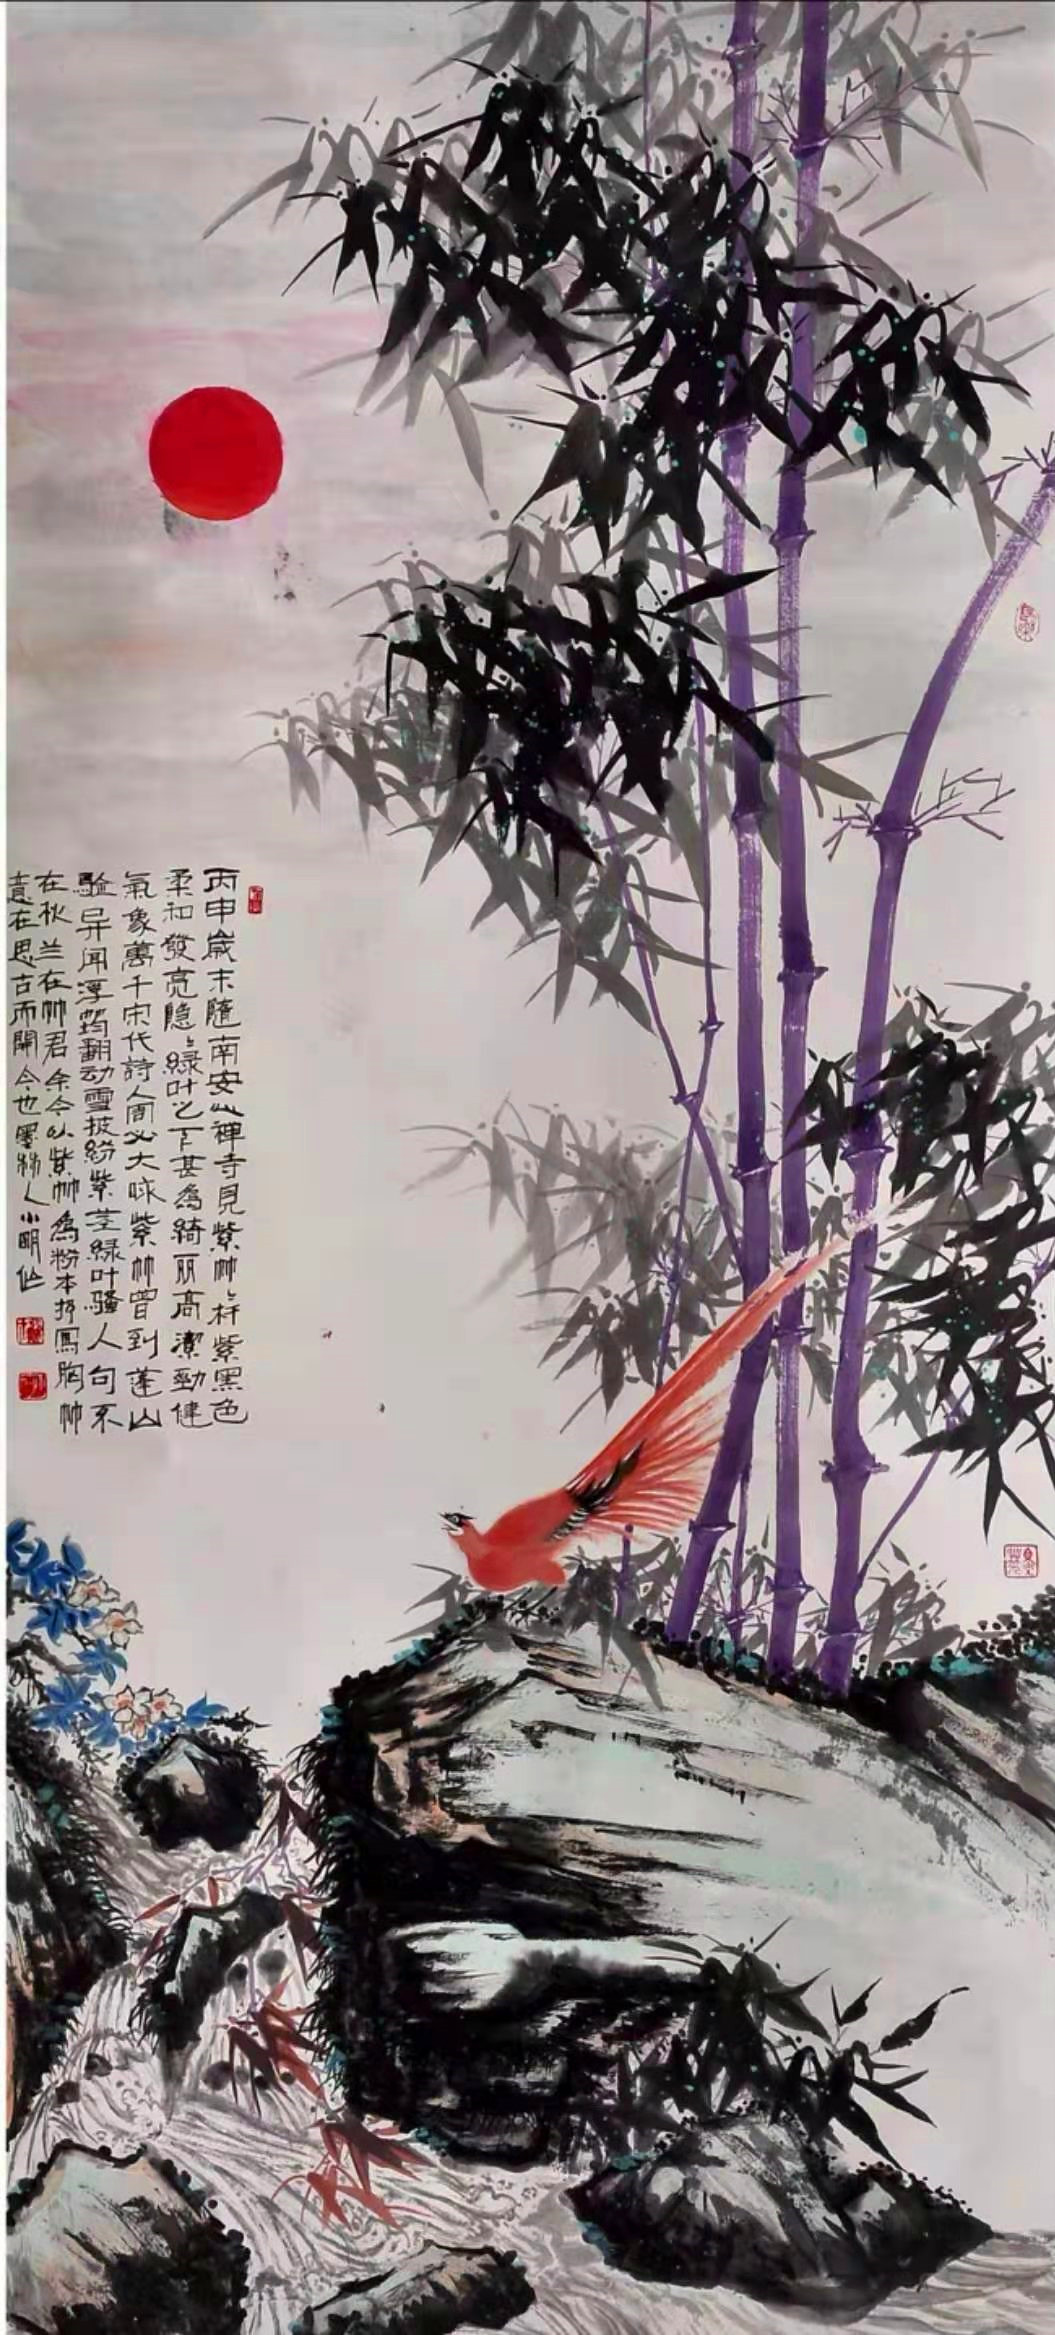 丙申歲末隨南安山禅寺見紫竹〻杆紫黑色
柔和發亮隐〻綠叶之下甚為綺丽高潔勁健
氣象萬千宋代詩人周必大咏紫竹曾到蓬山
驗异闻浮筠翻动雪披紛紫茎綠叶騷人句不
在秋兰在竹君余今以紫竹為粉本抒鳳胸竹
意在思古而開今也墨林人小明作